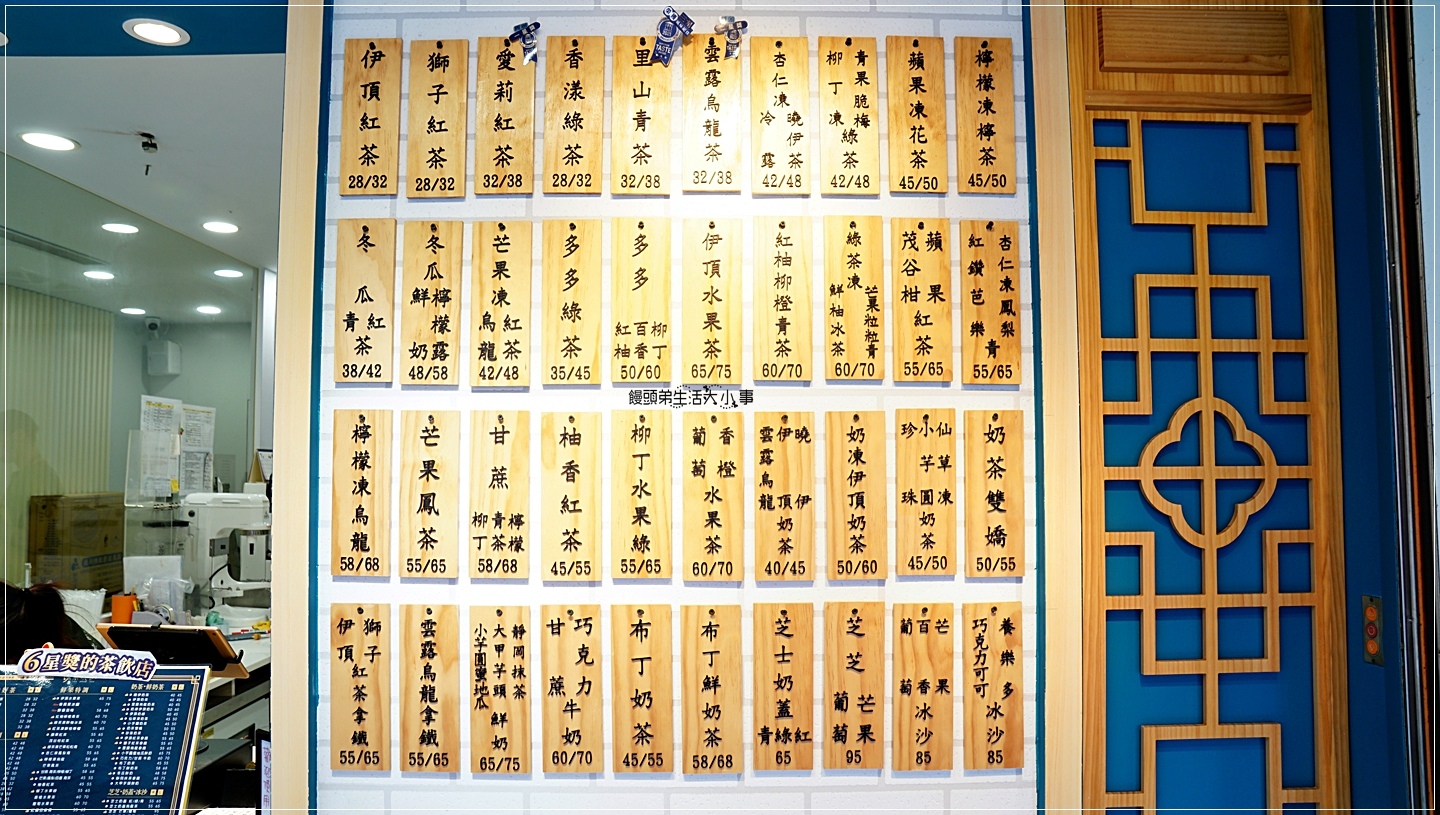 伊頂紅茶 28/32
獅子紅茶 28/32
愛莉紅茶 32/38
香漾綠茶 28/32
里山青茶 32/38
雲露烏龍茶 32/38
杏仁凍 冷露 曉伊茶 42/48
青果脆梅 柳丁凍 綠茶 42/48
蘋果凍花茶 45/50
檸檬凍檸茶 45/50
冬瓜 青 紅 茶 38/42
冬瓜 鮮奶 檸檬露 48/58
芒果凍 烏龍 紅茶 42/48
多多綠茶 35/45
多多 紅柚 百香 柳丁 50/60
伊頂水果茶 65/75
紅柚柳橙青茶 60/70
綠茶凍 鮮柚冰茶 芒果粒粒青 60/70
茂谷柑 蘋果 紅茶 55/65
杏仁凍鳳梨 紅鑽芭樂 青 55/65
饅頭弟生活大小事
檸檬凍烏龍 58/68
芒果鳳茶 55/65
甘蔗 柳丁 青茶 檸檬 58/68
柚香紅茶 45/55
柳丁水果綠 55/65
葡萄 香橙 水果茶 60/70
雲露烏龍 伊頂 曉伊 奶茶 40/45
奶凍伊頂奶茶 50/60
珍珠 小芋圓 仙草凍 奶茶 45/50
奶茶雙嬌 50/55
伊頂 獅子 紅茶拿鐵 55/65
雲露烏龍拿鐵 55/65
靜岡抹茶 大甲芋頭 小芋圓蜜地瓜 鮮奶 65/75
巧克力 甘蔗 牛奶 60/70
布丁奶茶 45/55
布丁鮮奶茶 58/68
芝士奶蓋 青綠紅 65
芝芝 葡萄 芒果 95
葡萄 百香 芒果 冰沙 85
養樂多 巧克力可可 冰沙 85
6星獎的茶飲店